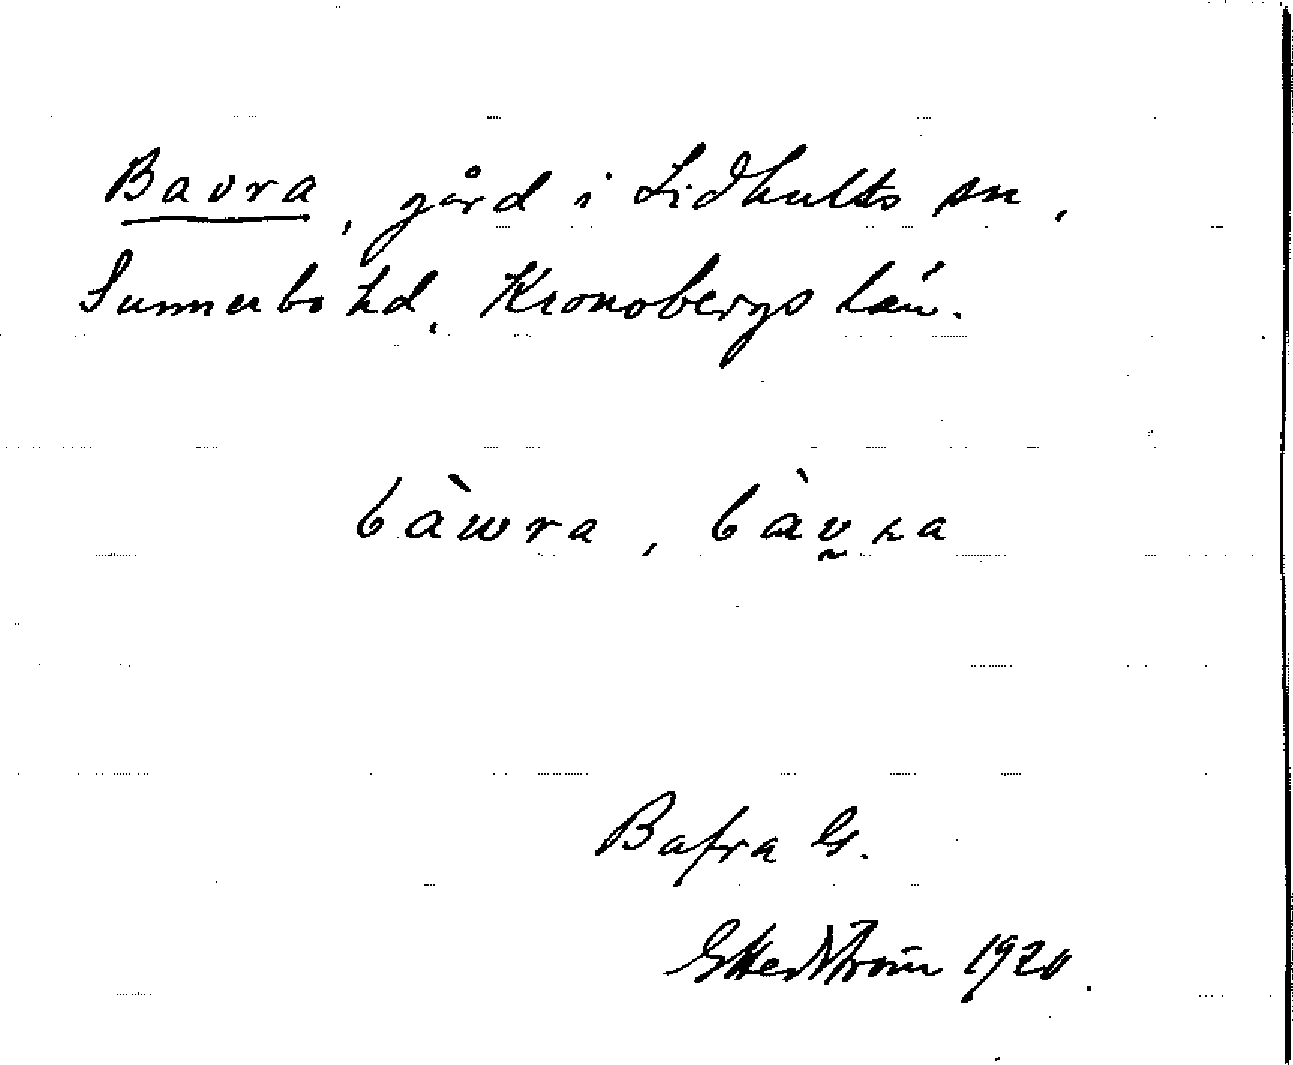 Bavra, gård i Lidhults sn,
Sunnerbo hd, Kronobergs län.
bàwra, bàv̰ra
Bafra G.
GHedström 1920.